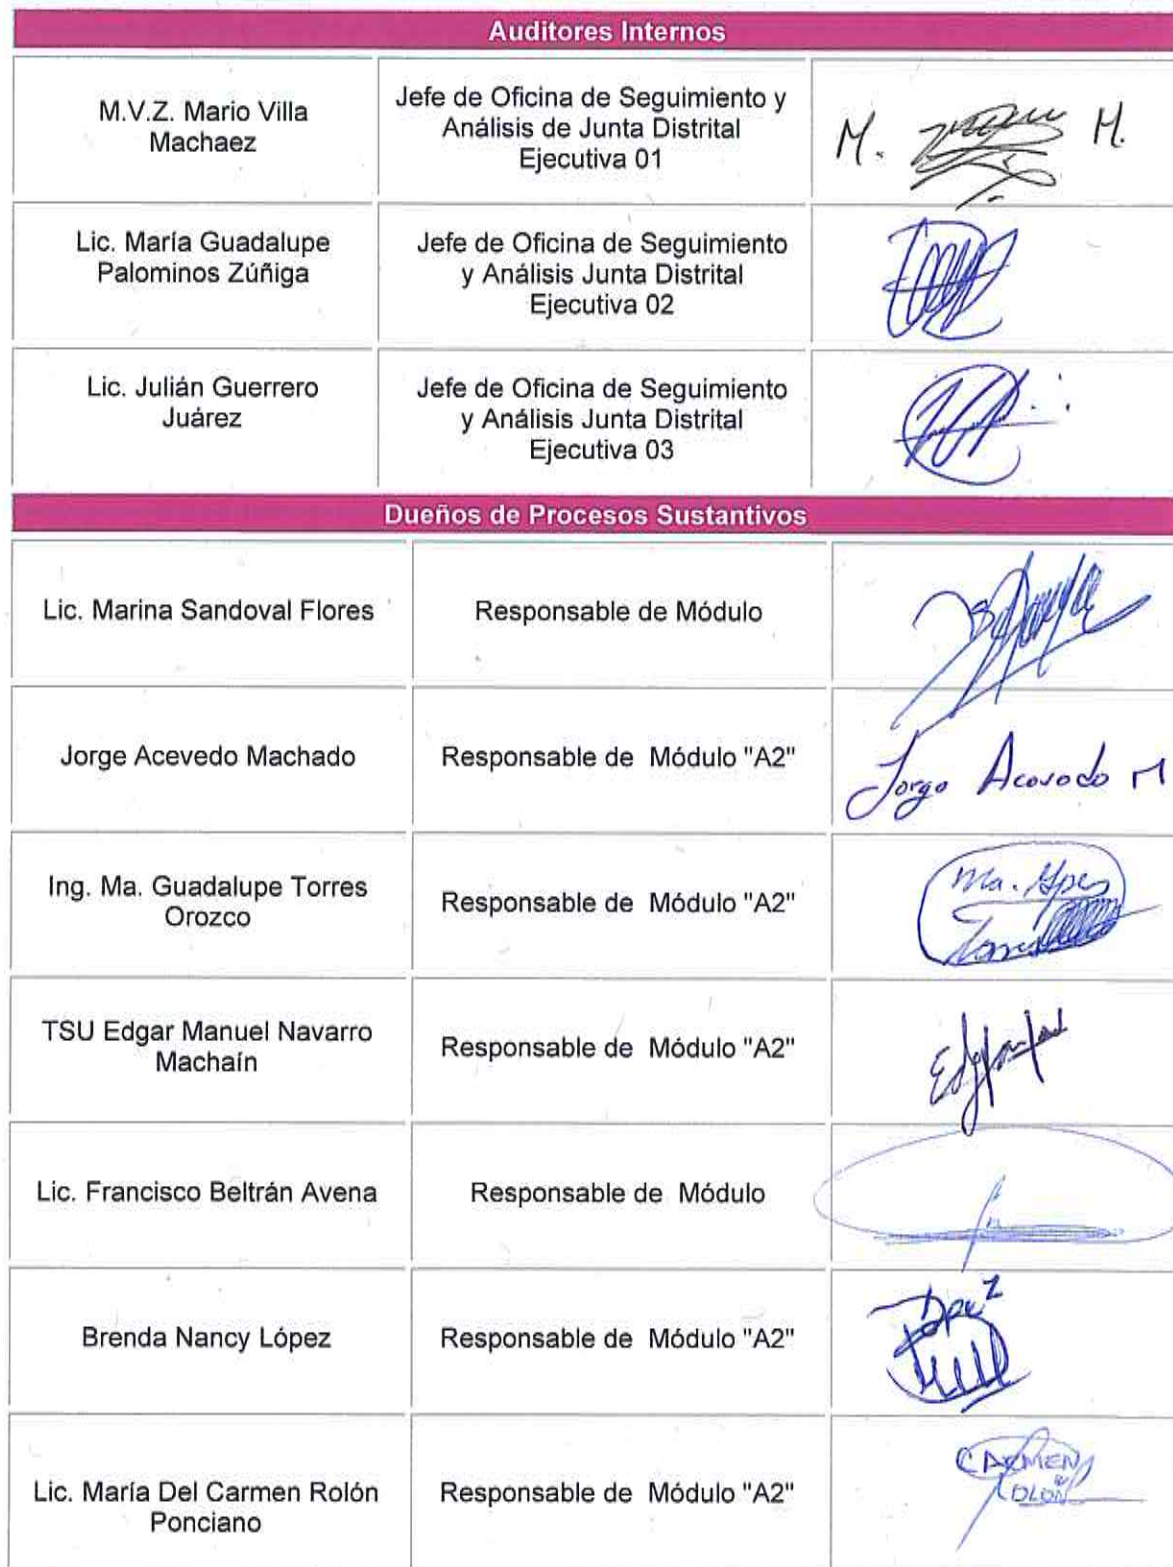 Auditores Internos
M.V.Z. Mario Villa
Machaez
Jefe de Oficina de Seguimiento y
Análisis de Junta Distrital
Ejecutiva 01
M. M.
Lic. María Guadalupe
Palominos Zúñiga
Jefe de Oficina de Seguimiento
y Análisis Junta Distrital
Ejecutiva 02
Lic. Julián Guerrero
Juárez
Jefe de Oficina de Seguimiento
y Análisis Junta Distrital
Ejecutiva 03
Dueños de Procesos Sustantivos
Lic. Marina Sandoval Flores
Responsable de Módulo
Jorge Acevedo Machado
Responsable de Módulo "A2"
Jorge Acevedo M
Ing. Ma. Guadalupe Torres
Orozco
Responsable de Módulo "A2"
Ma. Gpe
Torres
TSU Edgar Manuel Navarro
Machaín
Responsable de Módulo "A2"
Lic. Francisco Beltrán Avena
Responsable de Módulo
Brenda Nancy López
Responsable de Módulo "A2"
Lic. María Del Carmen Rolón
Ponciano
Responsable de Módulo "A2"
CARMEN
ROLÓN